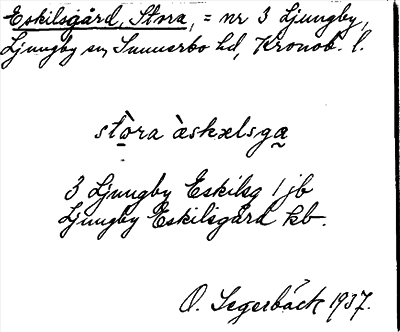 Eskilsgård, Stora, = nr 3 Ljungby,
Ljungby sn, Sunnerbo hd, Kronob. l.
stòra àskælsga
3 Ljungby Eskilsg 1 jb
Ljungby Eskilsgård kb.
O. Segerbäck 1937.